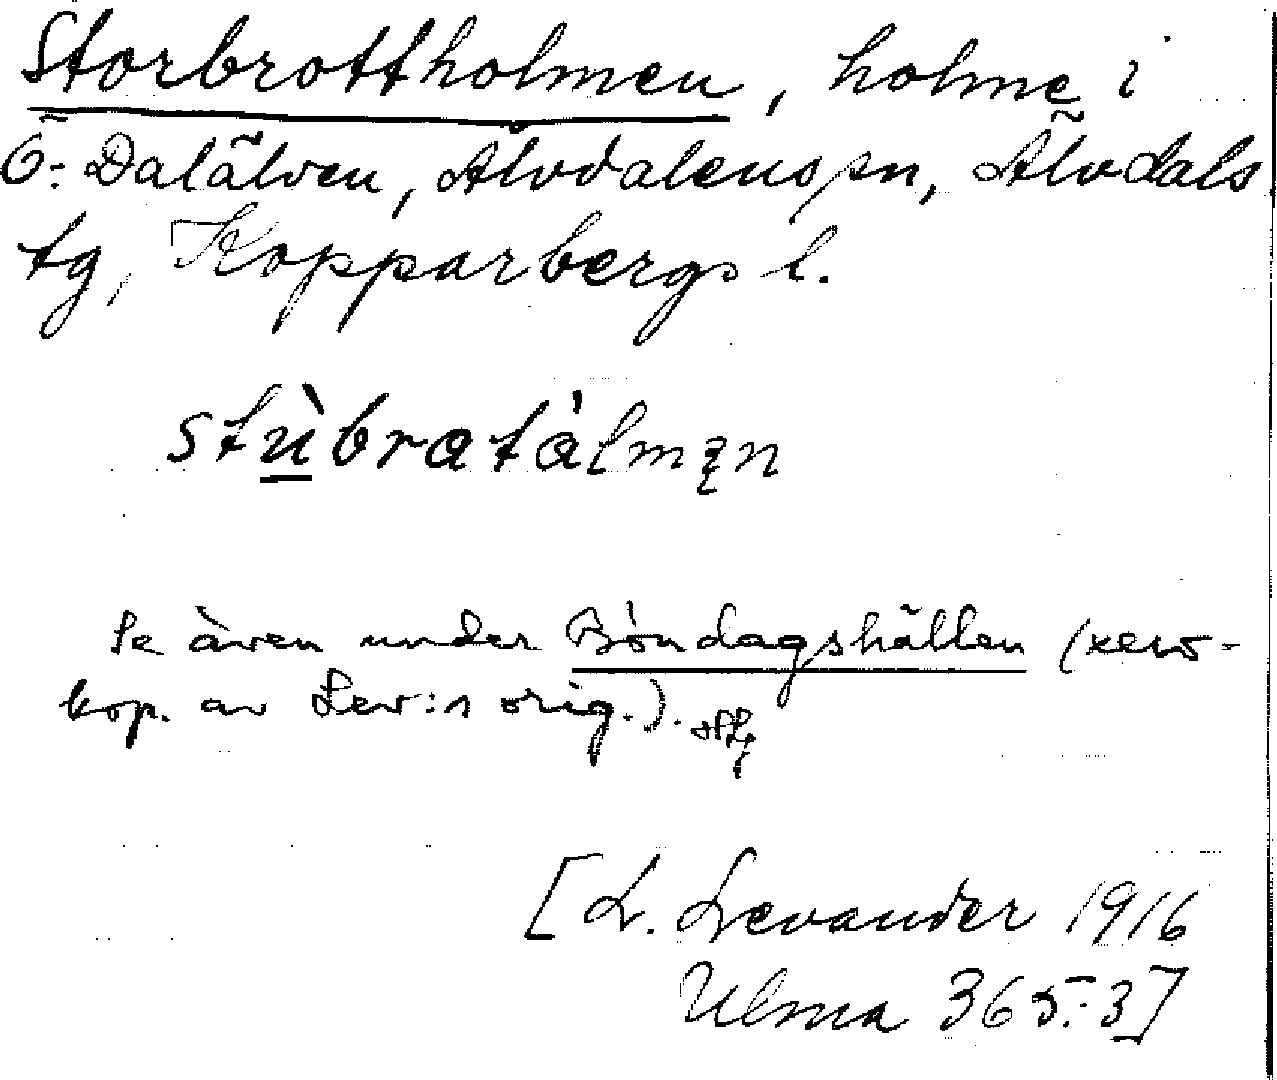 Storbrottholmen, holme i
Ö. Dalälven, Älvdalens sn, Älvdals
tg, Kopparbergs l.
stù̱bratàlmęn
Se även under Böndagshällen (xero-
kop. av Lev:s orig.).
[L. Levander 1916
Ulma 365:3]